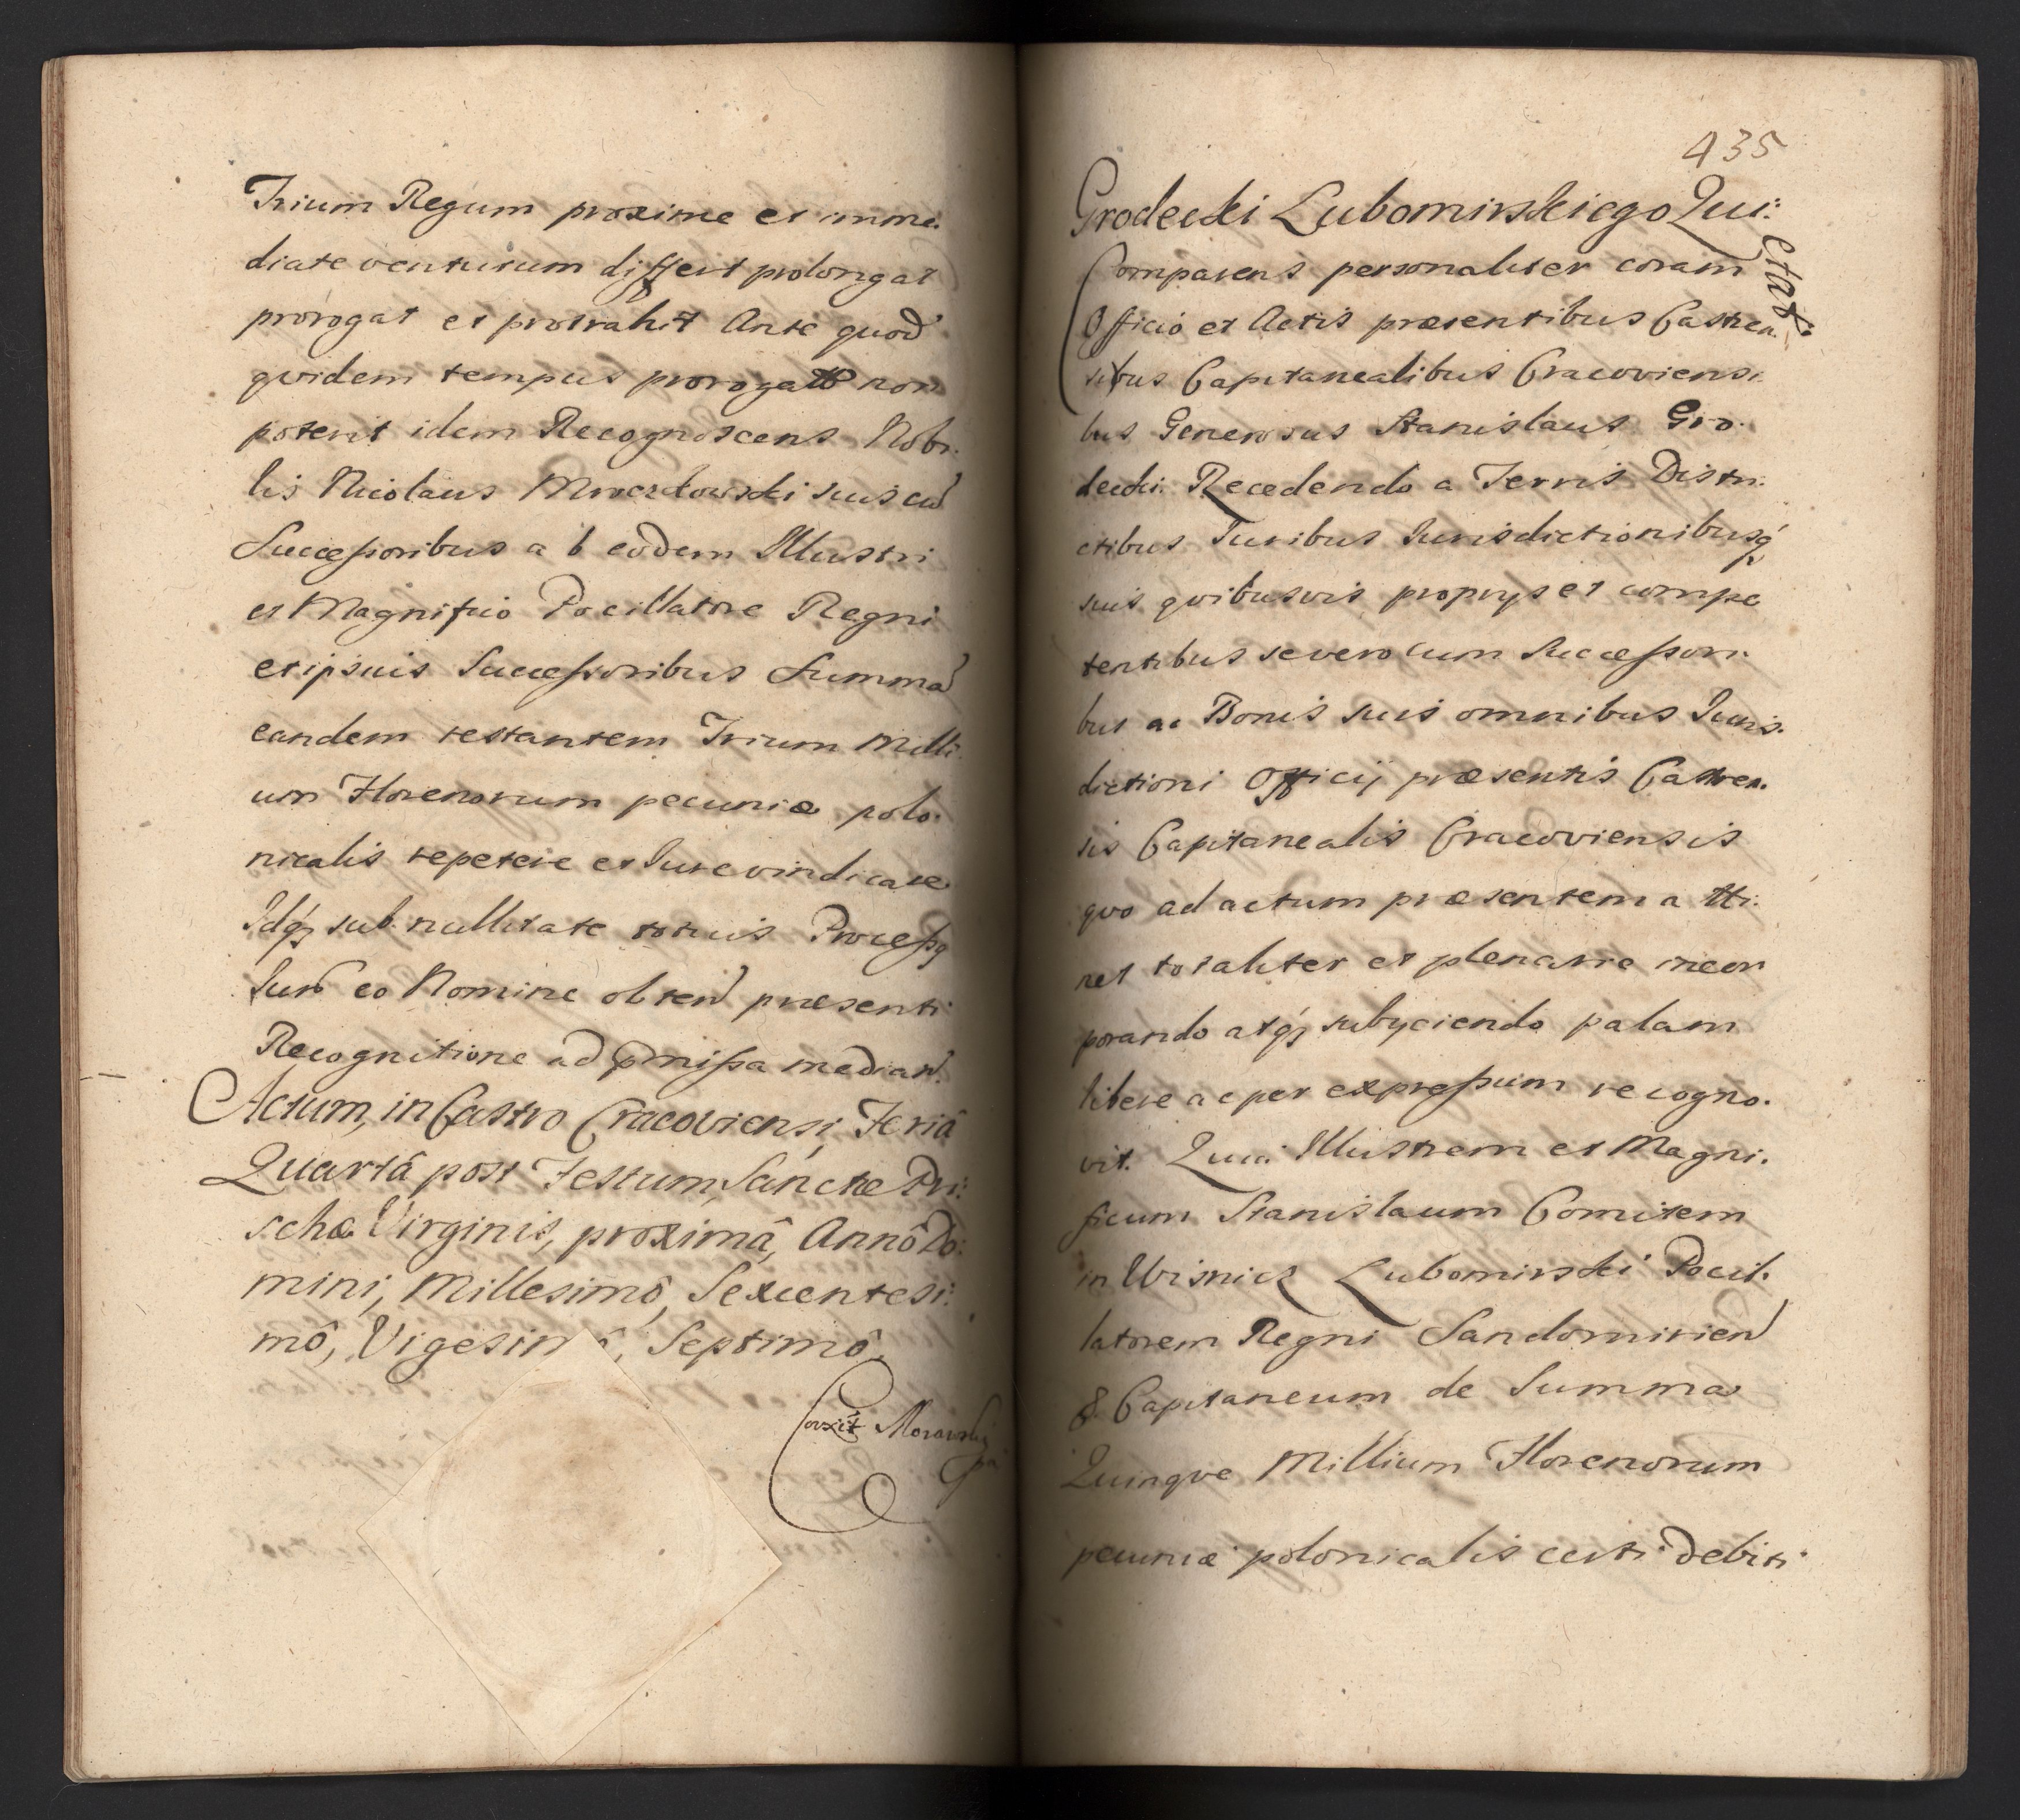 Trium Regum proxime et imme-
diate venturum differt prolongat
prorogat et protrahit Ante quod
quidem tempus prorogatū non
poterit idem Recognoscens Nobi-
lis Nicolaus Mroczkowski suis cū
Successoribus a b eodem Illustri
et Magnifico Pocillatore Regni
et ipsius Successoribus Summā
eandem restantem Trium Milli-
um Florenorum pecuniæ polo-
nicalis repetere et Jure vindicare
Idq́ʒ sub nullitate totius Processq
Jur eo Nomine obten præsenti
Recognitione ad præmissa median
Actum, in Castro Cracoviensi, Feriâ
Quartâ post Festum, Sanctæ Pri:
schæ Virginis, proximâ, Annô Do:
mini, Millesimô, Sexcentesi:
mô, Vigesimô, Septimô.
Corexit Morawski
435
Grodecki Lubomirskiego Qui:
etat:
Comparens personaliter coram
Officio et Actis præsentibus Castren-
sibus Capitanealibus Cracoviensi-
bus Generosus Stanislaus Gro-
decki. Recedendo a Terris Distri-
ctibus Juribus Jurisdictionibusq́
suis quibusvis proprys et compe
tentibus severo cum Successori-
bus ac Bonis suis omnibus Juris-
dictioni Officij præsentis Castren-
sis Capitanealis Cracoviensis
quo ad actum præsentem atti-
net totaliter et plenarie incor
porando atq́ʒ subyciendo palam
libere ac per expressum recogno-
vit. Quia Illustrem et Magni-
ficum Stanislaum Comitem
in Wisnicz Lubomirski Pocil-
latorem Regni Sandomirien
& Capitaneum de Summa
Quinque Millium Florenorum
pecuniæ polonicalis certi debiti